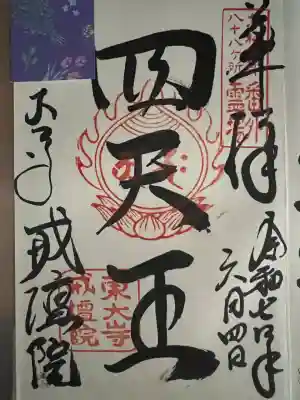 奉拝
八十八ヶ所
霊場
令和七年
六月四日
四天王
東大寺
戒壇院
大寺
戒壇院